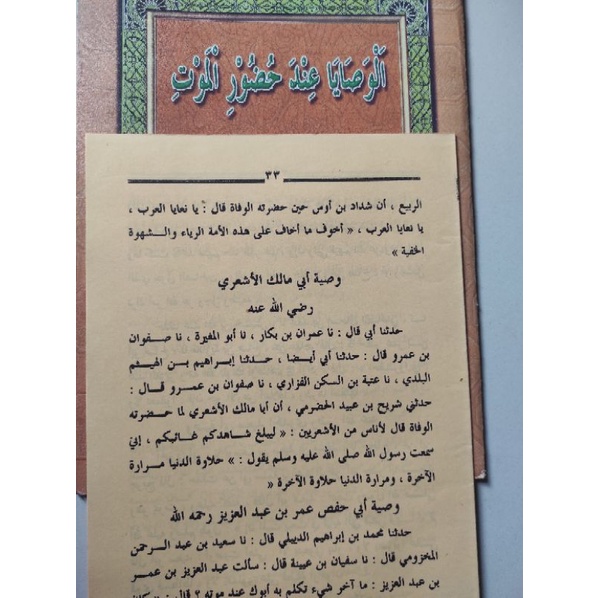 الْوَصَايَا عِنْدَ حُضُورِ الْمَوْتِ
٣٣
الربيع ، أن شداد بن أوس حين حضرته الوفاة قال : يا نعايا العرب ،
يا نعايا العرب ، « أخوف ما أخاف على هذه الأمة الرياء والشهوة
الخفية »
وصية أبي مالك الأشعري
رضي الله عنه
حدثنا أبي قال : نا عمران بن بكار ، نا أبو المغيرة ، نا صفوان
بن عمرو قال : حدثنا أبي أيضا ، حدثنا إبراهيم بن الهيثم
البلدي ، نا عتبة بن السكن الفزاري ، نا صفوان بن عمرو قال :
حدثني شريح بن عبيد الحضرمي ، أن أبا مالك الأشعري لما حضرته
الوفاة قال لأناس من الأشعريين : « ليبلغ شاهدكم غائبكم ، إني
سمعت رسول الله صلى الله عليه وسلم يقول : » حلاوة الدنيا مرارة
الآخرة ، ومرارة الدنيا حلاوة الآخرة «
وصية أبي حفص عمر بن عبد العزيز رحمه الله
حدثنا محمد بن إبراهيم الديبلي قال : نا سعيد بن عبد الرحمن
المخزومي قال : نا سفيان بن عيينة قال : سألت عبد العزيز بن عمر
بن عبد العزيز : ما آخر شيء تكلم به أبوك عند موته ؟ قال :